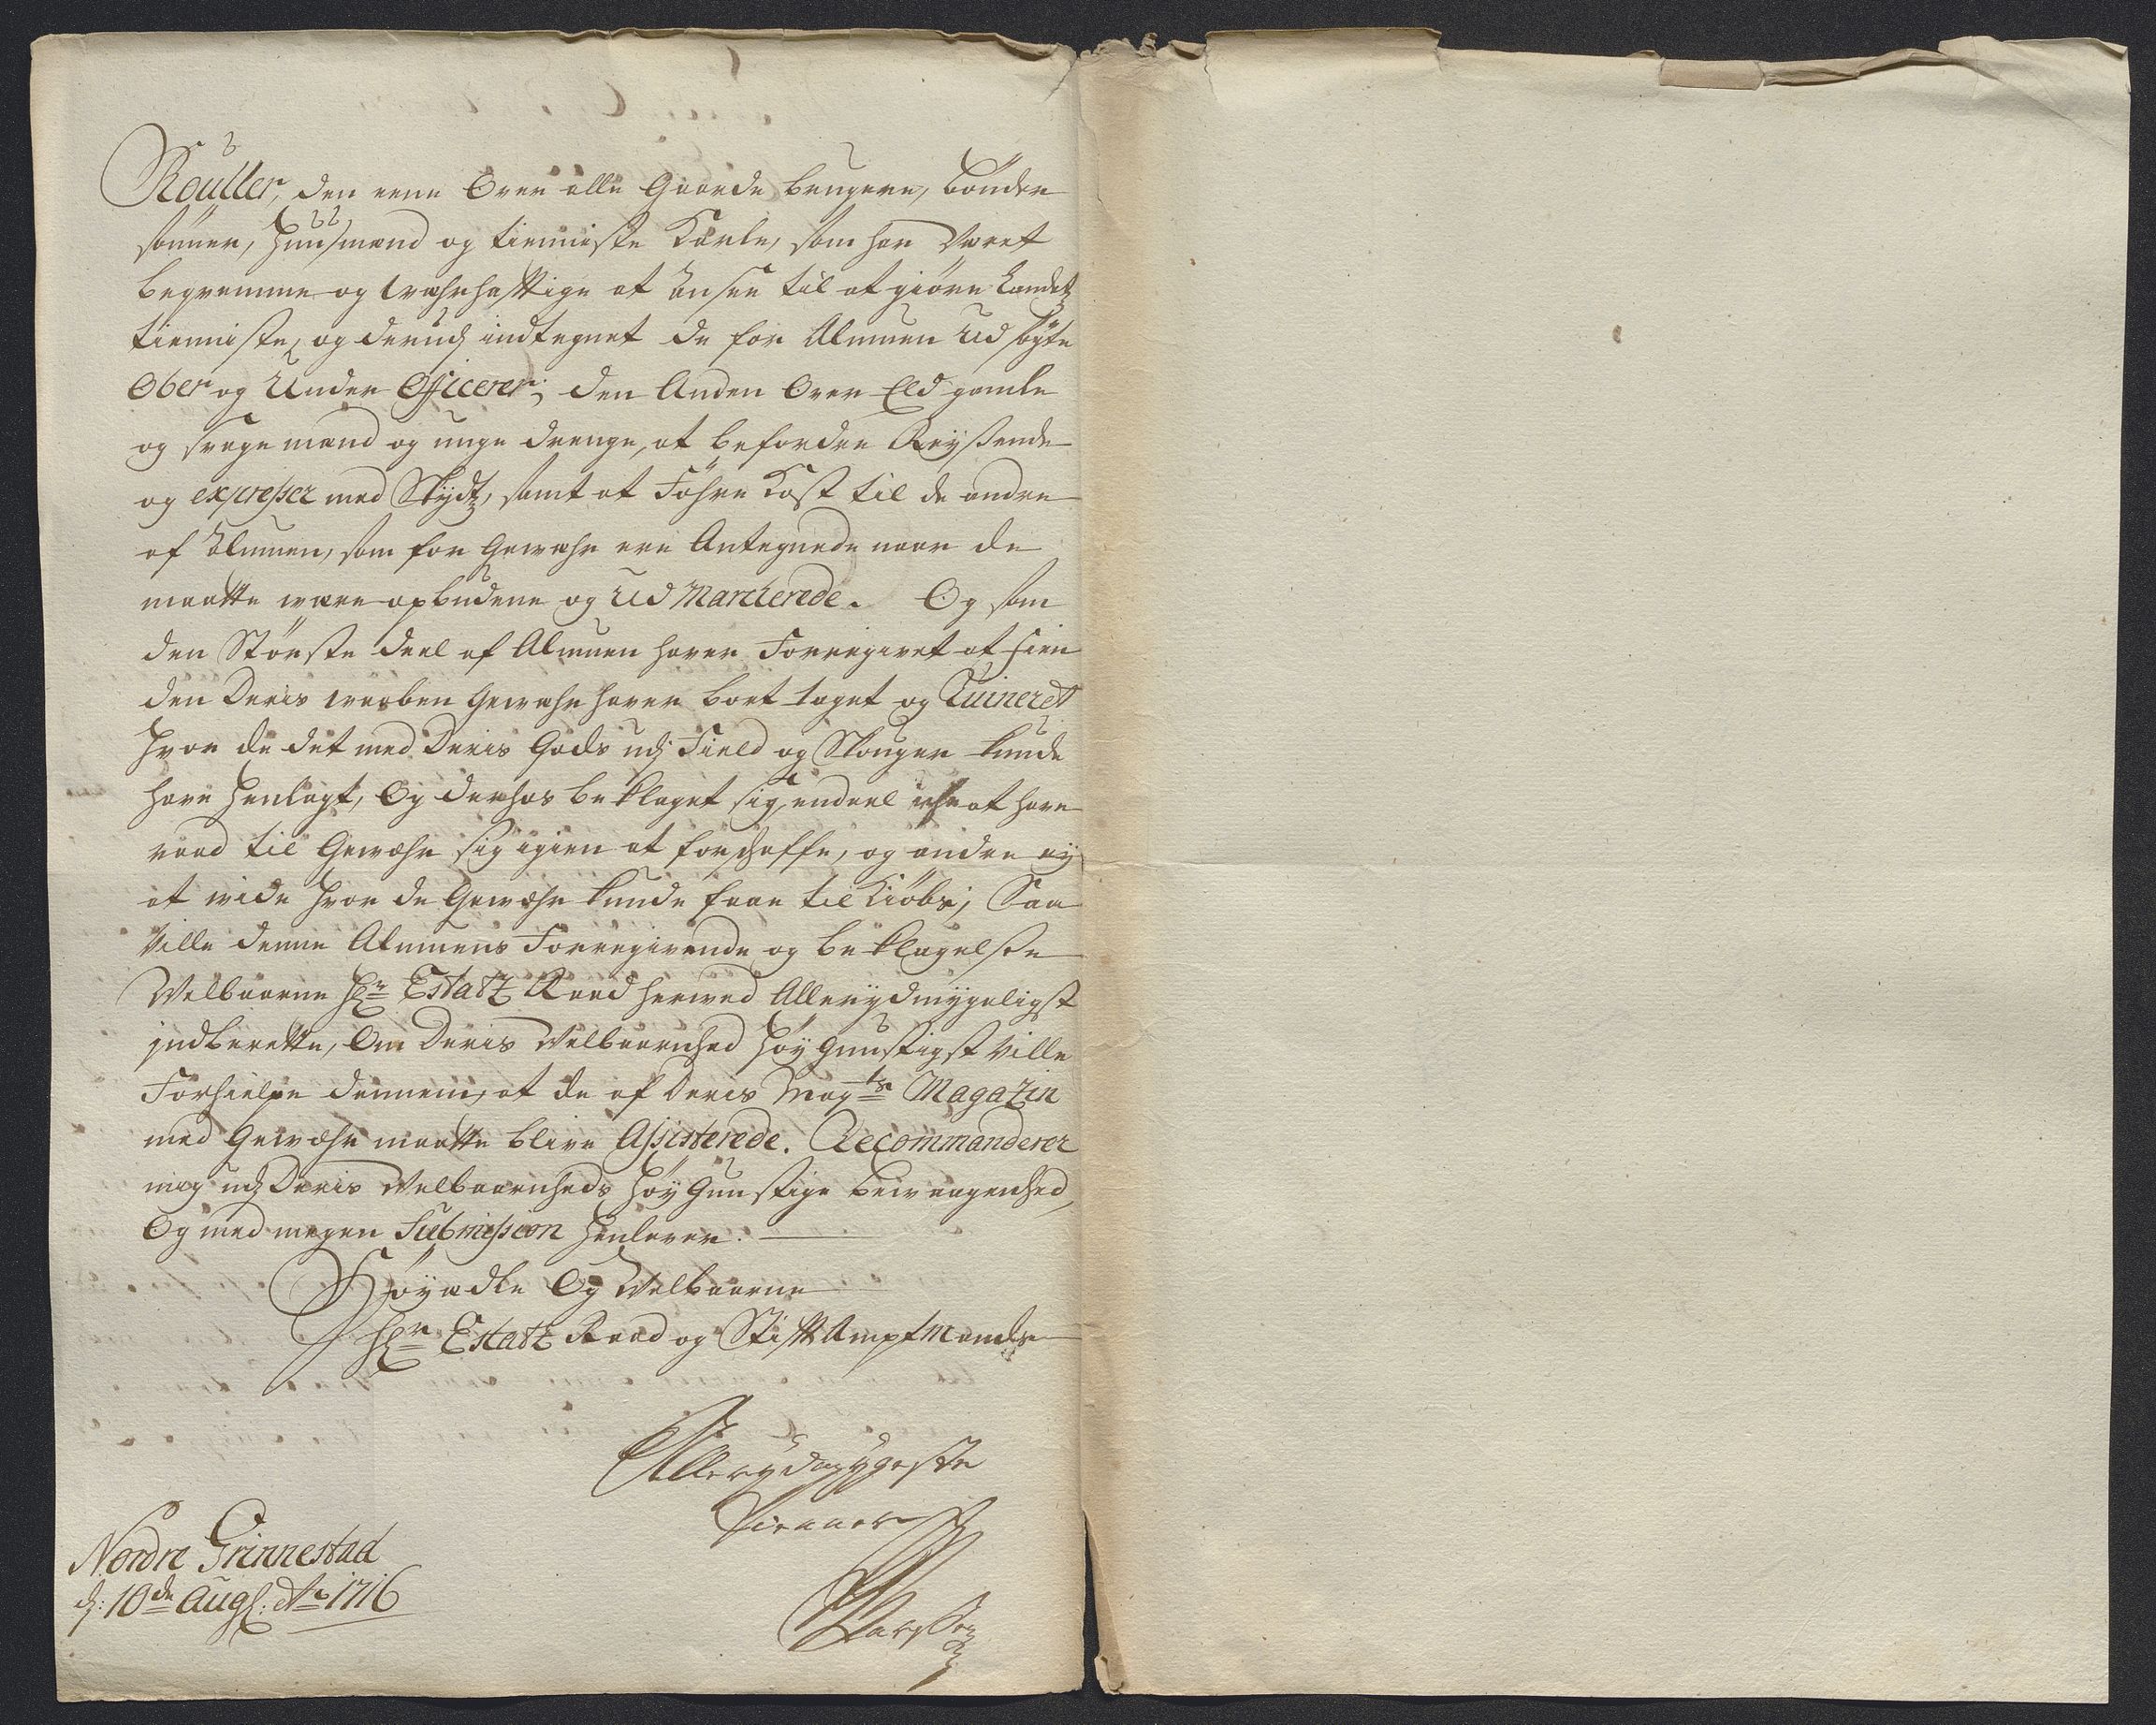 Roüller, den eene Over alle Gaarde brugere, bönder
sönner, Huusmænd og tienniste Karle, som har Været
beqvemme og wæhrhafftige at Ansee til at giöre Landtz
tienniste, og derudj indtegnet de for Almuen Ud søgte
Ober og Under Officerer; den Anden Over Eld gamle
og svage mænd og unge drenge, at befordre Reyßende
og expresser med Skydtz, samt at Föhre Kost til de andre
af Almuen, som for Gewæhr ere Antegnede naar de
maatte være opbudene og Ud Marcherede. Og som
den Störste deel af Almuen haver Forregivet at fien
den Deris waaben Gewæhr haver bort taget og Ruineret
hvor de det med Deris Gods udj Field og Skouger kunde
have henlagt, Og derhos be klaget sig, endeel icke at have
raad til Gewæhr sig igien at forschaffe, og andre ey
at vide hvor de Gewæhr kunde faae til Kiöbs; Saa
Ville denne Almuens Forregivende og be klagelße
Welbaarne Hr Estatz Raad herved Allerydmygeligst
jndberette, Om Deris Velbaarnhed Høy Gunstigst Ville
Forhielpe dennem, at de af Deris Mayts Magazin
med Gewæhr maatte blive Aßisterede. Recommanderer
mig udj Deris Velbaarnheds høy Gunstige bewaagenhed,
Og med megen Submission henlever.
Höyædle Og Velbaarne
Hr Estatz Raad og Stifft Ampt Mands
Allerydmygeste
tienner
Nordre Grinnestad
d: 10de Augs: Ao 1716